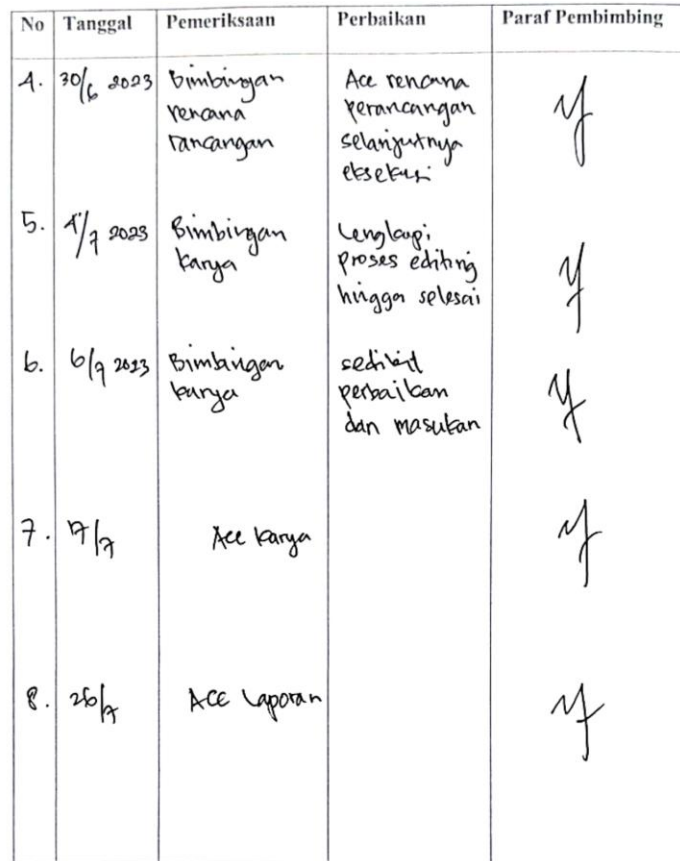 No Tanggal Pemeriksaan Perbaikan Paraf Pembimbing
4. 30/6 2023 Bimbingan Ace rencana
rencana perancangan
rancangan selanjutnya
eksekusi
5. 4/7 2023 Bimbingan Lengkapi
karya proses editing
hingga selesai
6. 6/7 2023 Bimbingan sedikit
karya perbaikan
dan masukan
7. 17/7 Acc karya
8. 26/7 ACC Laporan